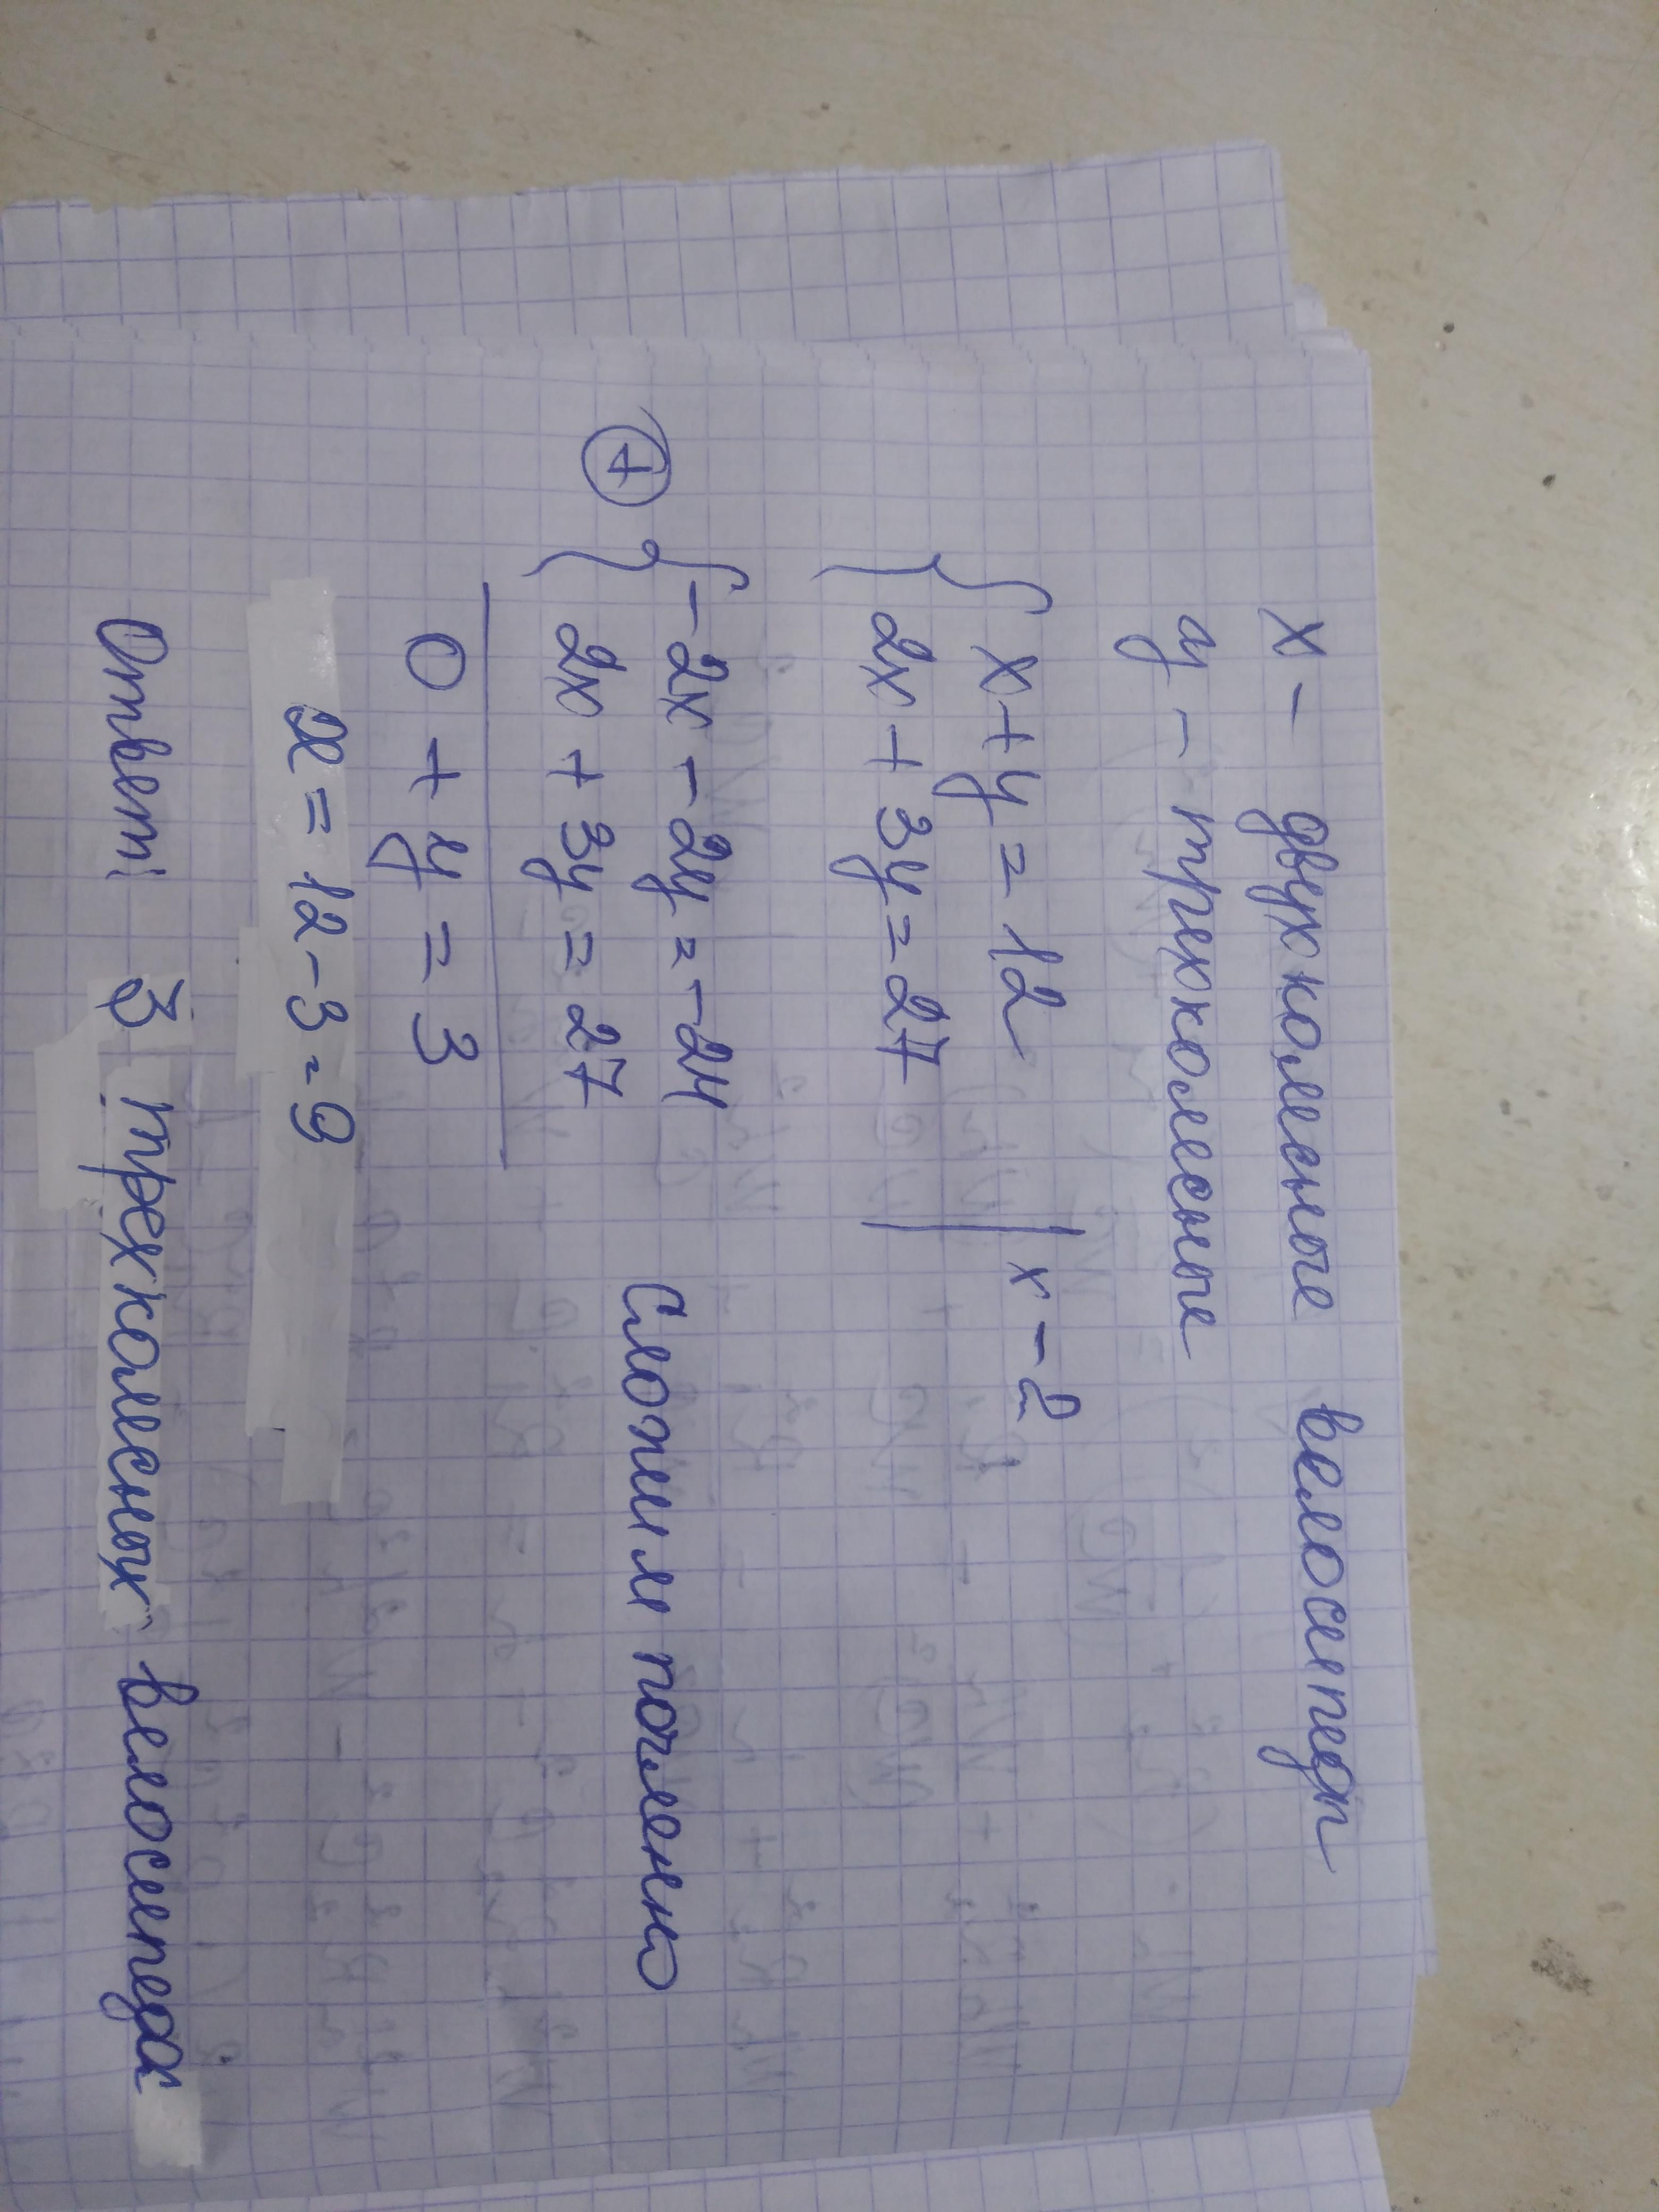 x – двухколесные велосипед
y – трехколесные
{ x + y = 12 | x – 2
{ 2x + 3y = 27 |
+ { -2x – 2y = -24
{ 2x + 3y = 27
Сложим почленно
0 + y = 3
x = 12 – 3 = 9
Ответ: 3 трехколесных велосипеда